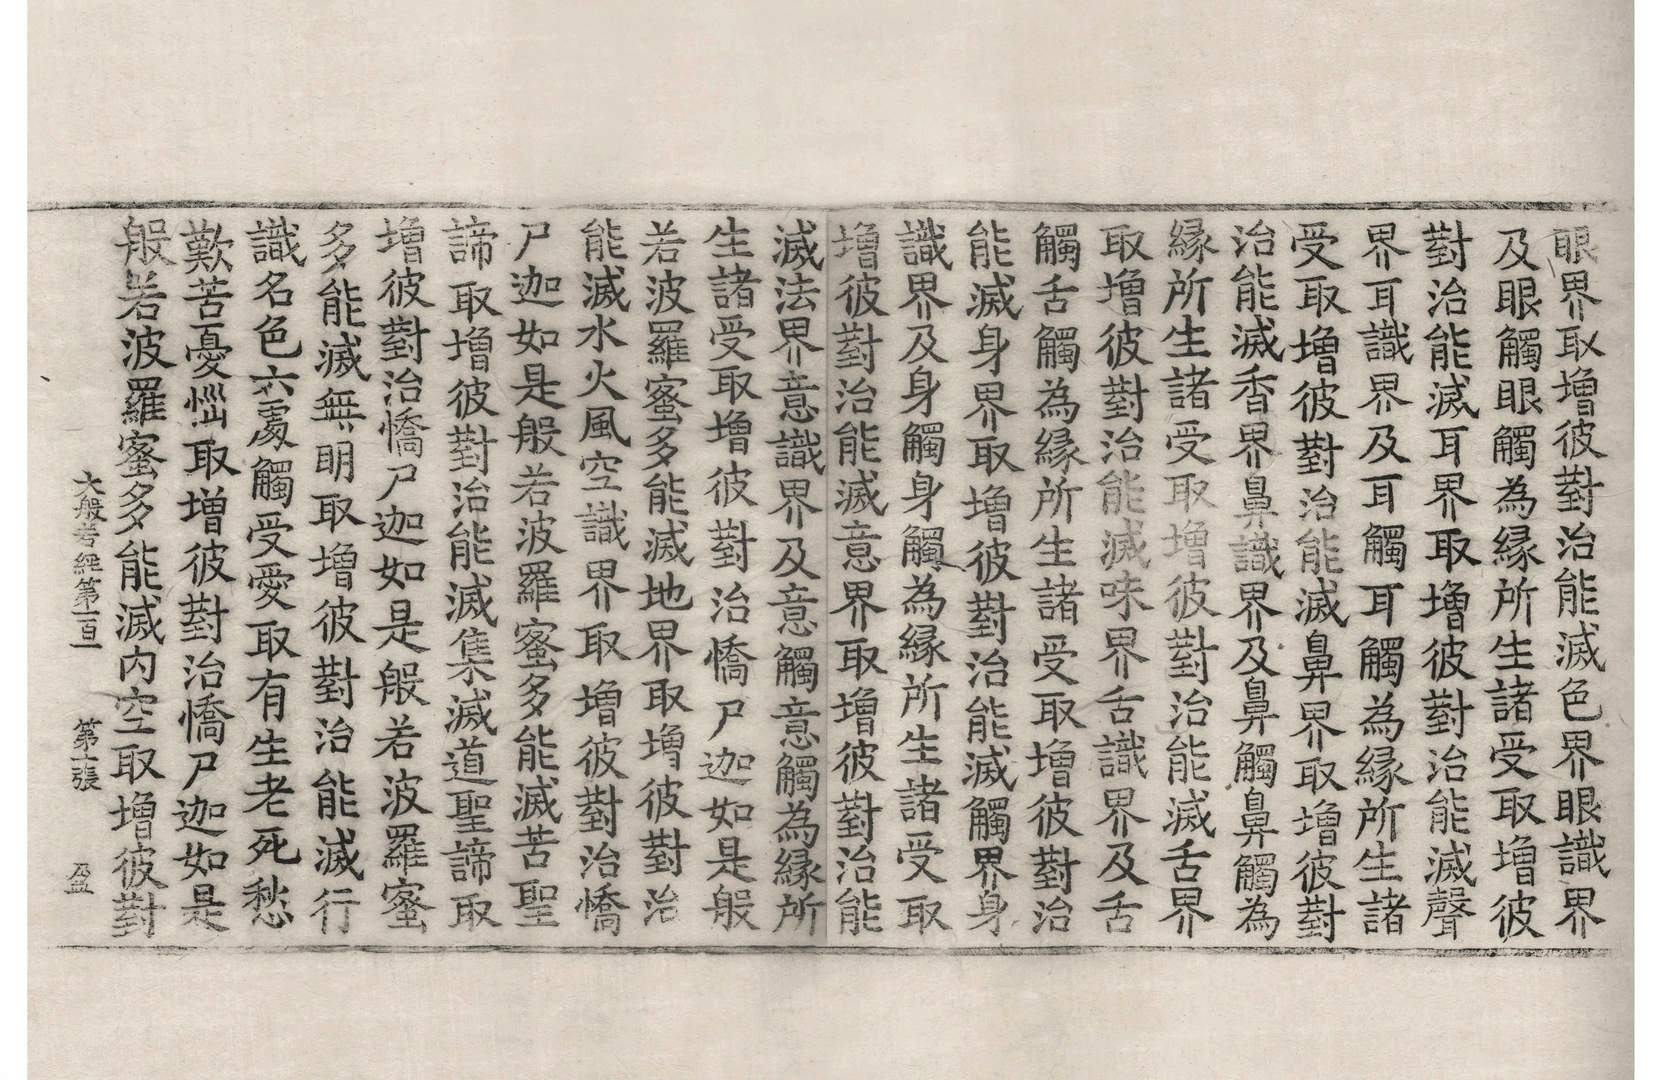 眼界取增彼對治能滅色界眼識界
及眼觸眼觸為縁所生諸受取增彼
對治能滅耳界取增彼對治能滅聲
界耳識界及耳觸耳觸為縁所生諸
受取增彼對治能滅鼻界取增彼對
治能滅香界鼻識界及鼻觸鼻觸為
縁所生諸受取增彼對治能滅舌界
取增彼對治能滅味界舌識界及舌
觸舌觸為縁所生諸受取增彼對治
能滅身界取增彼對治能滅觸界身
識界及身觸身觸為縁所生諸受取
增彼對治能滅意界取增彼對治能
滅法界意識界及意觸意觸為縁所
生諸受取增彼對治憍尸迦如是般
若波羅蜜多能滅地界取增彼對治
能滅水火風空識界取增彼對治憍
尸迦如是般若波羅蜜多能滅苦聖
諦取增彼對治能滅集滅道聖諦取
增彼對治憍尸迦如是般若波羅蜜
多能滅無明取增彼對治能滅行
識名色六處觸受愛取有生老死愁
歎苦憂惱取增彼對治憍尸迦如是
般若波羅蜜多能滅内空取增彼對
大般若經第一百一 第十一張 盈